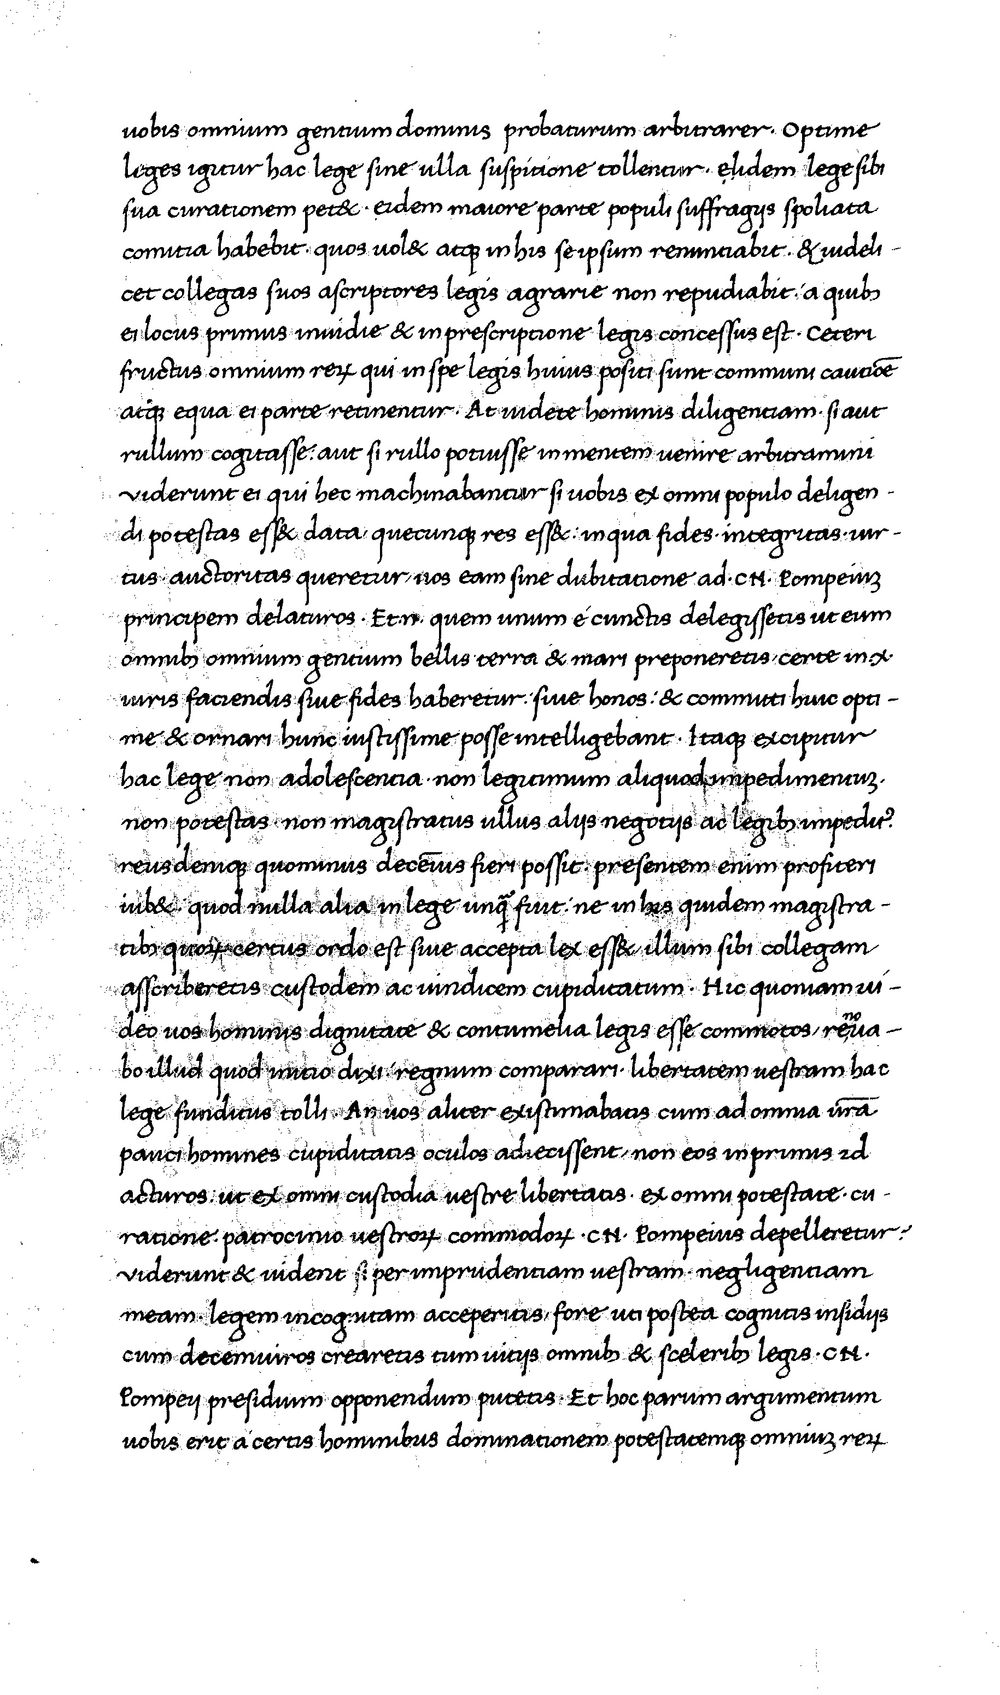 uobis omnium gentium dominis probaturum arbitrarer. Optime
leges igitur hac lege sine ulla suspitione tollentur. eiidem lege sibi
sua curationem pet&. eidem maiore parte populi suffragijs spoliata
comitia habebit. quos uol& atq; in his se ipsum renuntiabit. & uideli-
cet collegas suos ascriptores legis agrarie non repudiabit: a quib;
ei locus primus inuidie & in prescriptione legis concessus est. Ceteri
fructus omnium reꝝ qui in spe legis huius positi sunt communi cautiōe
atq; equa ei parte retinentur. At uidete hominis diligentiam. si aut
rullum cogitasse: aut si rullo potuisse in mentem uenire arbitramini
viderunt ei qui hec machinabantur si uobis ex omni populo deligen-
di potestas ess& data quecunq; res ess&: in qua fides. integritas. uir-
tus. auctoritas queretur uos eam sine dubitatione ad. CN. Pompeiuꝫ
principem delaturos. Et.n. quem unum é cunctis delegissetis ut eum
omnib; omnium gentium bellis terra & mari preponeretis, certe in .x.
uiris faciendis siue fides haberetur. siue honos: & committi huic opti-
me & ornari hunc iustissime posse intelligebant. Itaq; excipitur
hac lege non adolescentia. non legitimum aliquod impedimentuꝫ.
non potestas. non magistratus ullus alijs negotijs ac legib; impedit9.
reus deniq; quominus decēuius fieri possit. presentem enim profiteri
iub&. quod nulla alia in lege unq̄ fuit. ne in his quidem magistra-
tib; quoꝝ certus ordo est siue accepta lex ess& illum sibi collegam
asscriberetis custodem ac uindicem cupiditatum. Hic quoniam ui-
deo uos hominis dignitate & contumelia legis esse commotos, renoua-
bo illud quod initio dixi. regnum comparari. libertatem uestram hac
lege funditus tolli. An uos aliter existimabatis cum ad omnia ur̄a
pauci homines cupiditatis oculos adiecissent, non eos in primis id
acturos. ut ex omni custodia uestre libertatis. ex omni potestate. cu-
ratione. patrocinio uestroꝝ commodoꝝ. CN. Pompeius depelleretur?
viderunt & uident si per imprudentiam uestram. negligentiam
meam. legem incognitam acceperitis, fore uti postea cognitis insidijs
cum decemuiros crearetis tum uitijs omnib; & scelerib; legis. CN.
Pompeij presidium opponendum putetis. Et hoc parum argumentum
uobis erit a certis hominibus dominationem potestatemq; omniuꝫ reꝝ